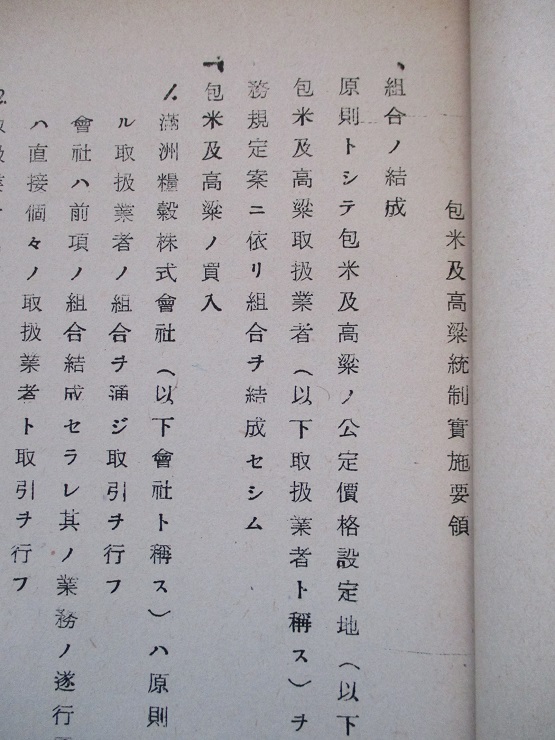 包米及高粱統制實施要領
、組合ノ結成
原則トシテ包米及高粱ノ公定價格設定地(以下
包米及高粱取扱業者(以下取扱業者ト稱ス)ヲ
務規定案ニ依リ組合ヲ結成セシム
一包米及高粱ノ買入
1.滿洲糧穀株式會社(以下會社ト稱ス)ハ原則
ル取扱業者ノ組合ヲ通ジ取引ヲ行フ
會社ハ前項ノ組合結成セラレ其ノ業務ノ遂行
ハ直接個々ノ取扱業者ト取引ヲ行フ
2.取扱業